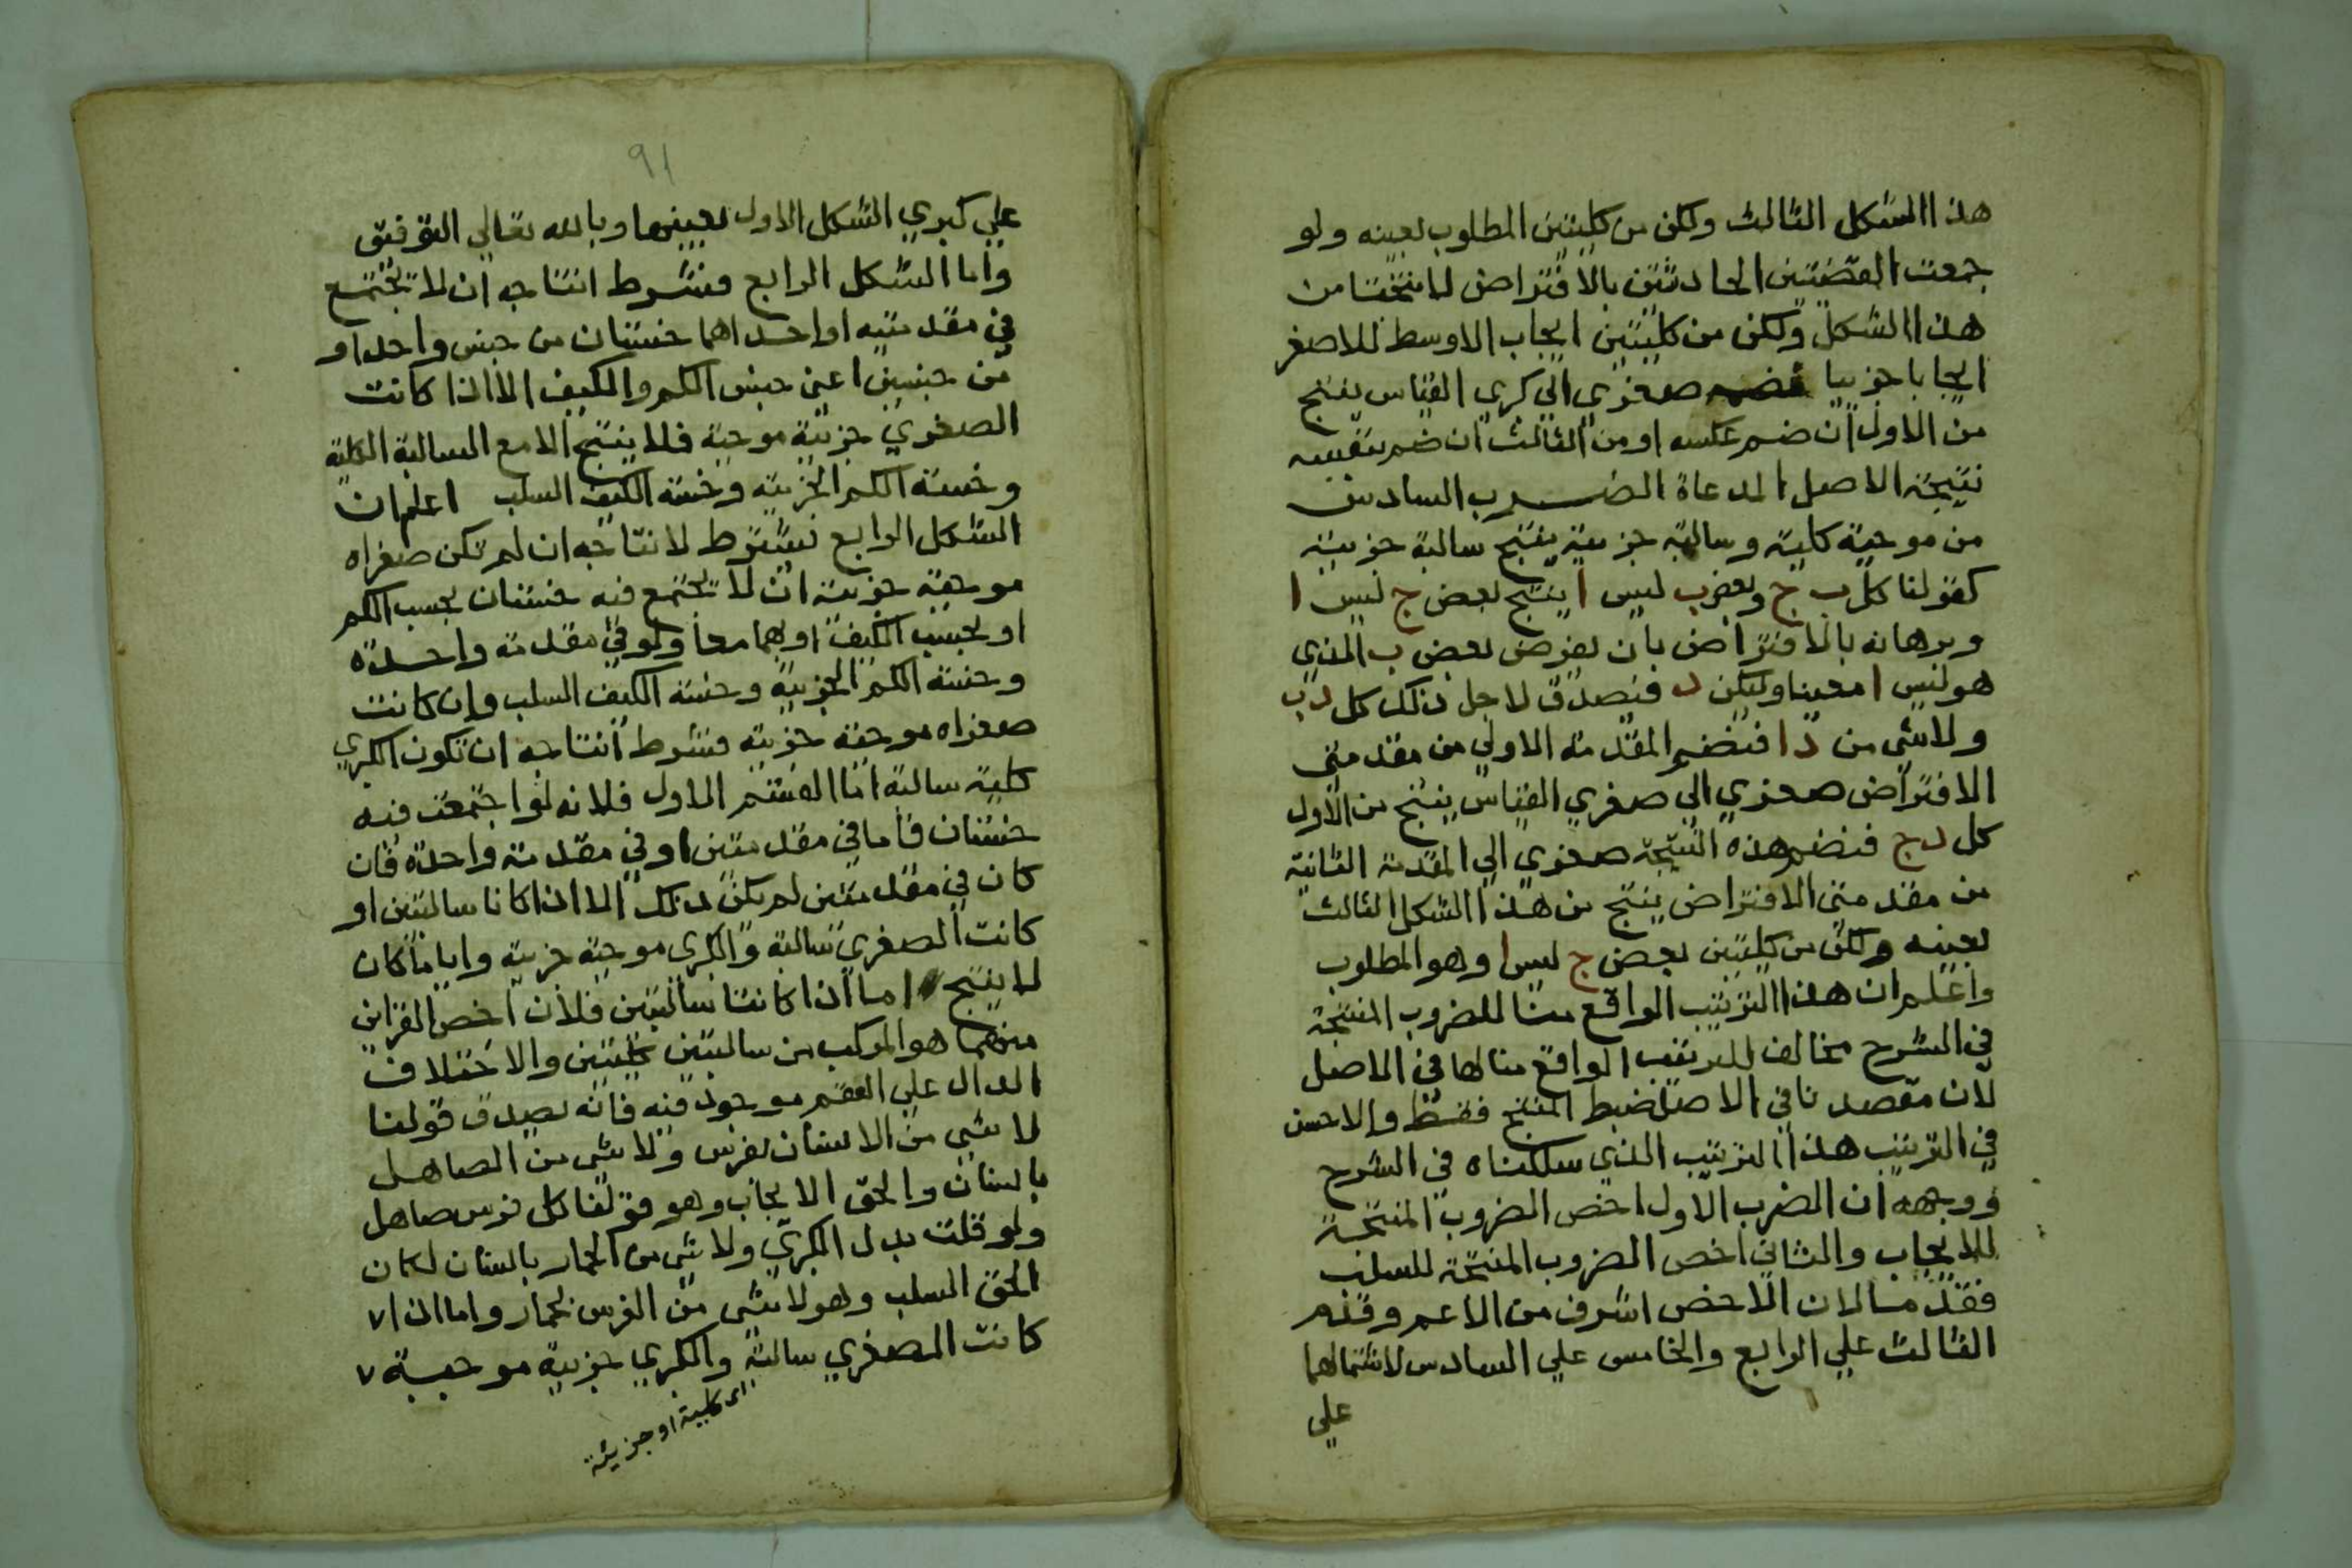 هذا الشكل الثالث ولكن من كليتين المطلوب بعينه ولو
جمعت القضيتين الحادثتين بالافتراض لانتجتا من
هذا الشكل ولكن من كليتين ايجاب الاوسط للاصغر
ايجابا جزييا صغري الي كبري القياس ينتج
من الاول ان ضم عكسه او من الثالث ان ضم بنفسه
نتيجة الاصل المدعاة الضرب السادس
من موجبة كلية وسالبة جزيية ينتج سالبة جزيية
كقولنا كل ب ج وبعض ب ليس ا ينتج بعض ج ليس ا
وبرهانه بالافتراض بان يفرض بعض ب الذي
هو ليس ا معينا وليكن د فيصدق لاجل ذلك كل د ب
ولا شي من د ا فيضم المقدمة الاولي من مقدمتي
الافتراض صغري الي صغري القياس ينتج من الاول
كل د ج فنضم هذه النتيجة صغري الي المقدمة الثانية
من مقدمتي الافتراض ينتج من هذا الشكل الثالث
بعينه ولكن من كليتين بعض ج ليس ا وهو المطلوب
واعلم ان هذا الترتيب الواقع منا للضروب المنتجة
في الشرح مخالف للترتيب الواقع منا لها في الاصل
لان مقصدنا في الاصل ضبط المنتج فقط والاحسن
في الترتيب هذا الترتيب الذي سلكناه في الشرح
ووجهه ان الضرب الاول اخص الضروب المنتجة
للايجاب والثاني اخص الضروب المنتجة للسلب
فقدما لان الاخص اشرف من الاعم وقدم
الثالث علي الرابع والخامس علي السادس لاشتمالهما
علي
٩١
علي كبري الشكل الاول بعينها وبالله تعالي التوفيق
واما الشكل الرابع فشرط انتاجه ان لا تجتمع
في مقدمتيه او احداهما خستان من جنس واحد او
من جنسين اعني جنس الكم والكيف الا اذا كانت
الصغري جزيية موجبة فلا ينتج الا مع السالبة الكلية
وخسة الكم الجزيية وخسة الكيف السلب اعلم ان
الشكل الرابع يشترط لانتاجه ان لم تكن صغراه
موجبة جزيية ان لا تجتمع فيه خستان بحسب الكم
او بحسب الكيف او بهما معا ولو في مقدمة واحدة
وخسة الكم الجزيية وخسة الكيف السلب وان كانت
صغراه موجبة جزيية فشرط انتاجه ان تكون الكبري
كلية سالبة اما القسم الاول فلانه لو اجتمعت فيه
خستان فاما في مقدمتين او في مقدمة واحدة فان
كان في مقدمتين لم يكن ذلك الا اذا كانا سالبتين او
كانت الصغري سالبة والكبري موجبة جزيية وايا ما كان
لا ينتج اما اذا كانتا سالبتين فلان اخص القراين
منهما هو المركب من سالبتين كليتين والاختلاف
الدال علي العقم موجود فيه فانه يصدق قولنا
لا شي من الانسان بفرس ولا شي من الصاهل
بانسان والحق الايجاب وهو قولنا كل فرس صاهل
ولو قلت بدل الكبري ولا شي من الحمار بانسان لكان
الحق السلب وهو لا شي من الفرس بحمار واما اذا ٧
كانت الصغري سالبة والكبري جزيية موجبة ٧
اي كلية او جزيئة